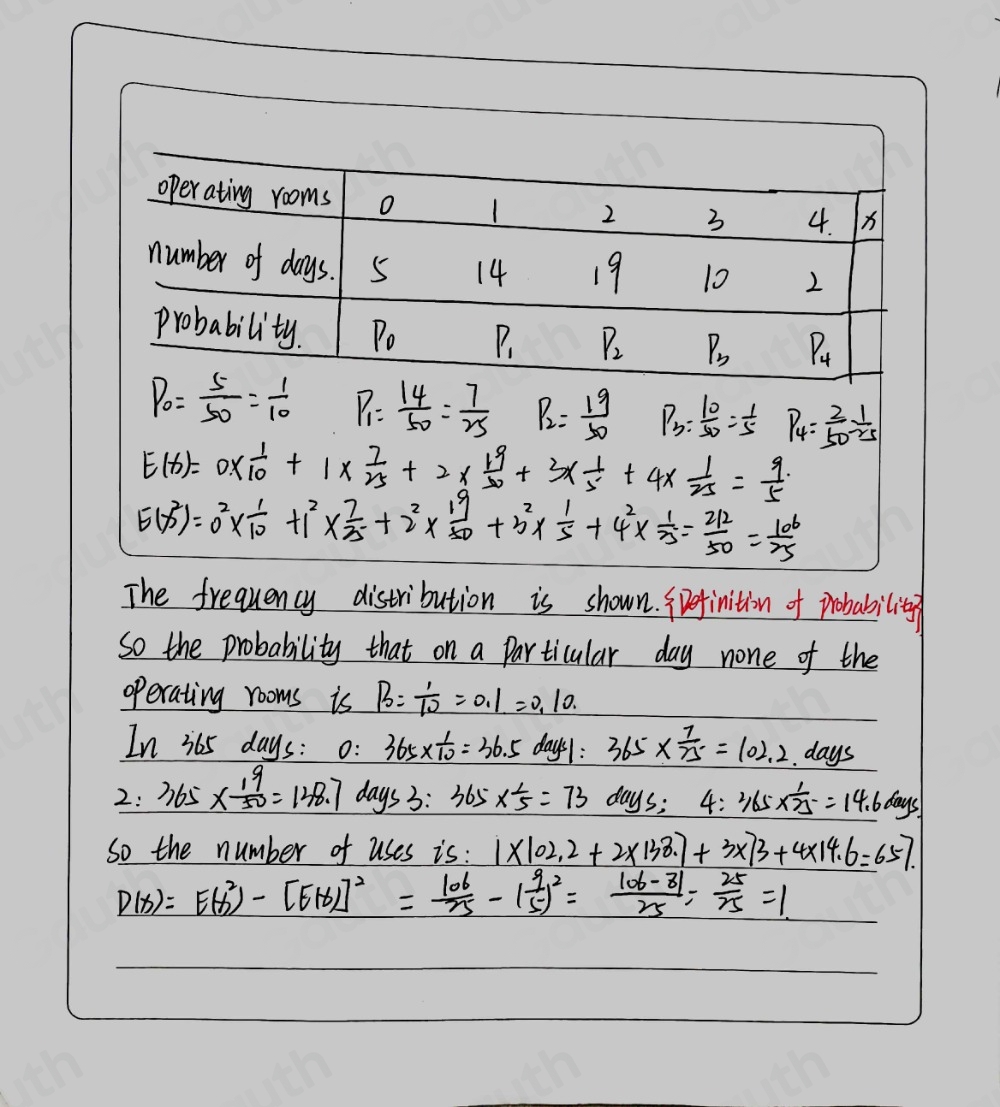 operating rooms 0 1 2 3 4. x
number of days. 5 14 19 10 2
probability. P₀ P₁ P₂ P₃ P₄
P₀= 5/50 = 1/10 P₁= 14/50 = 7/25 P₂= 19/50 P₃= 10/50 = 1/5 P₄= 2/50 = 1/25
E(x)= 0×1/10 + 1×7/25 + 2×19/50 + 3×1/5 + 4×1/25 = 9/5.
E(x²)= 0²×1/10 +1²×7/25 + 2²×19/50 + 3²×1/5 + 4²×1/25 = 212/50 = 106/25
The frequency distribution is shown. {Definition of probability}
so the probability that on a particular day none of the
operating rooms is P₀= 1/10 = 0.1 =0.10.
In 365 days: 0: 365×1/10 = 36.5 days 1: 365×7/25 = 102.2. days
2: 365×19/50 = 138.7 days 3: 365×1/5 = 73 days; 4: 365×1/25 = 14.6 days.
so the number of uses is: 1×102.2 + 2×138.7 + 3×73 + 4×14.6=657.
D(x)= E(x²) - [E(x)]² = 106/25 - (9/5)² = 106-81/25 = 25/25 = 1.